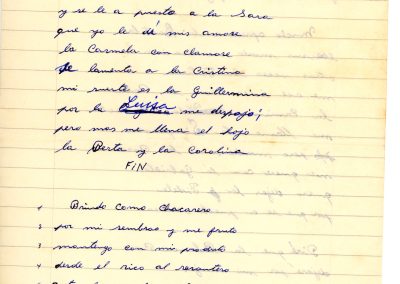 y se le a puesto a la Sara
que yo le dé mis amore
la Carmela con clamore
se lamenta a la Cristina
mi suerte es la Guillermina
por la Luisa me despojo;
pero mas me llena el hojo
la Berta y la Carolina
FIN
1 Brindo Como Chacarero
2 por mi sembrao y me fruto
3 mantengo con mi producto
4 desde el rico al